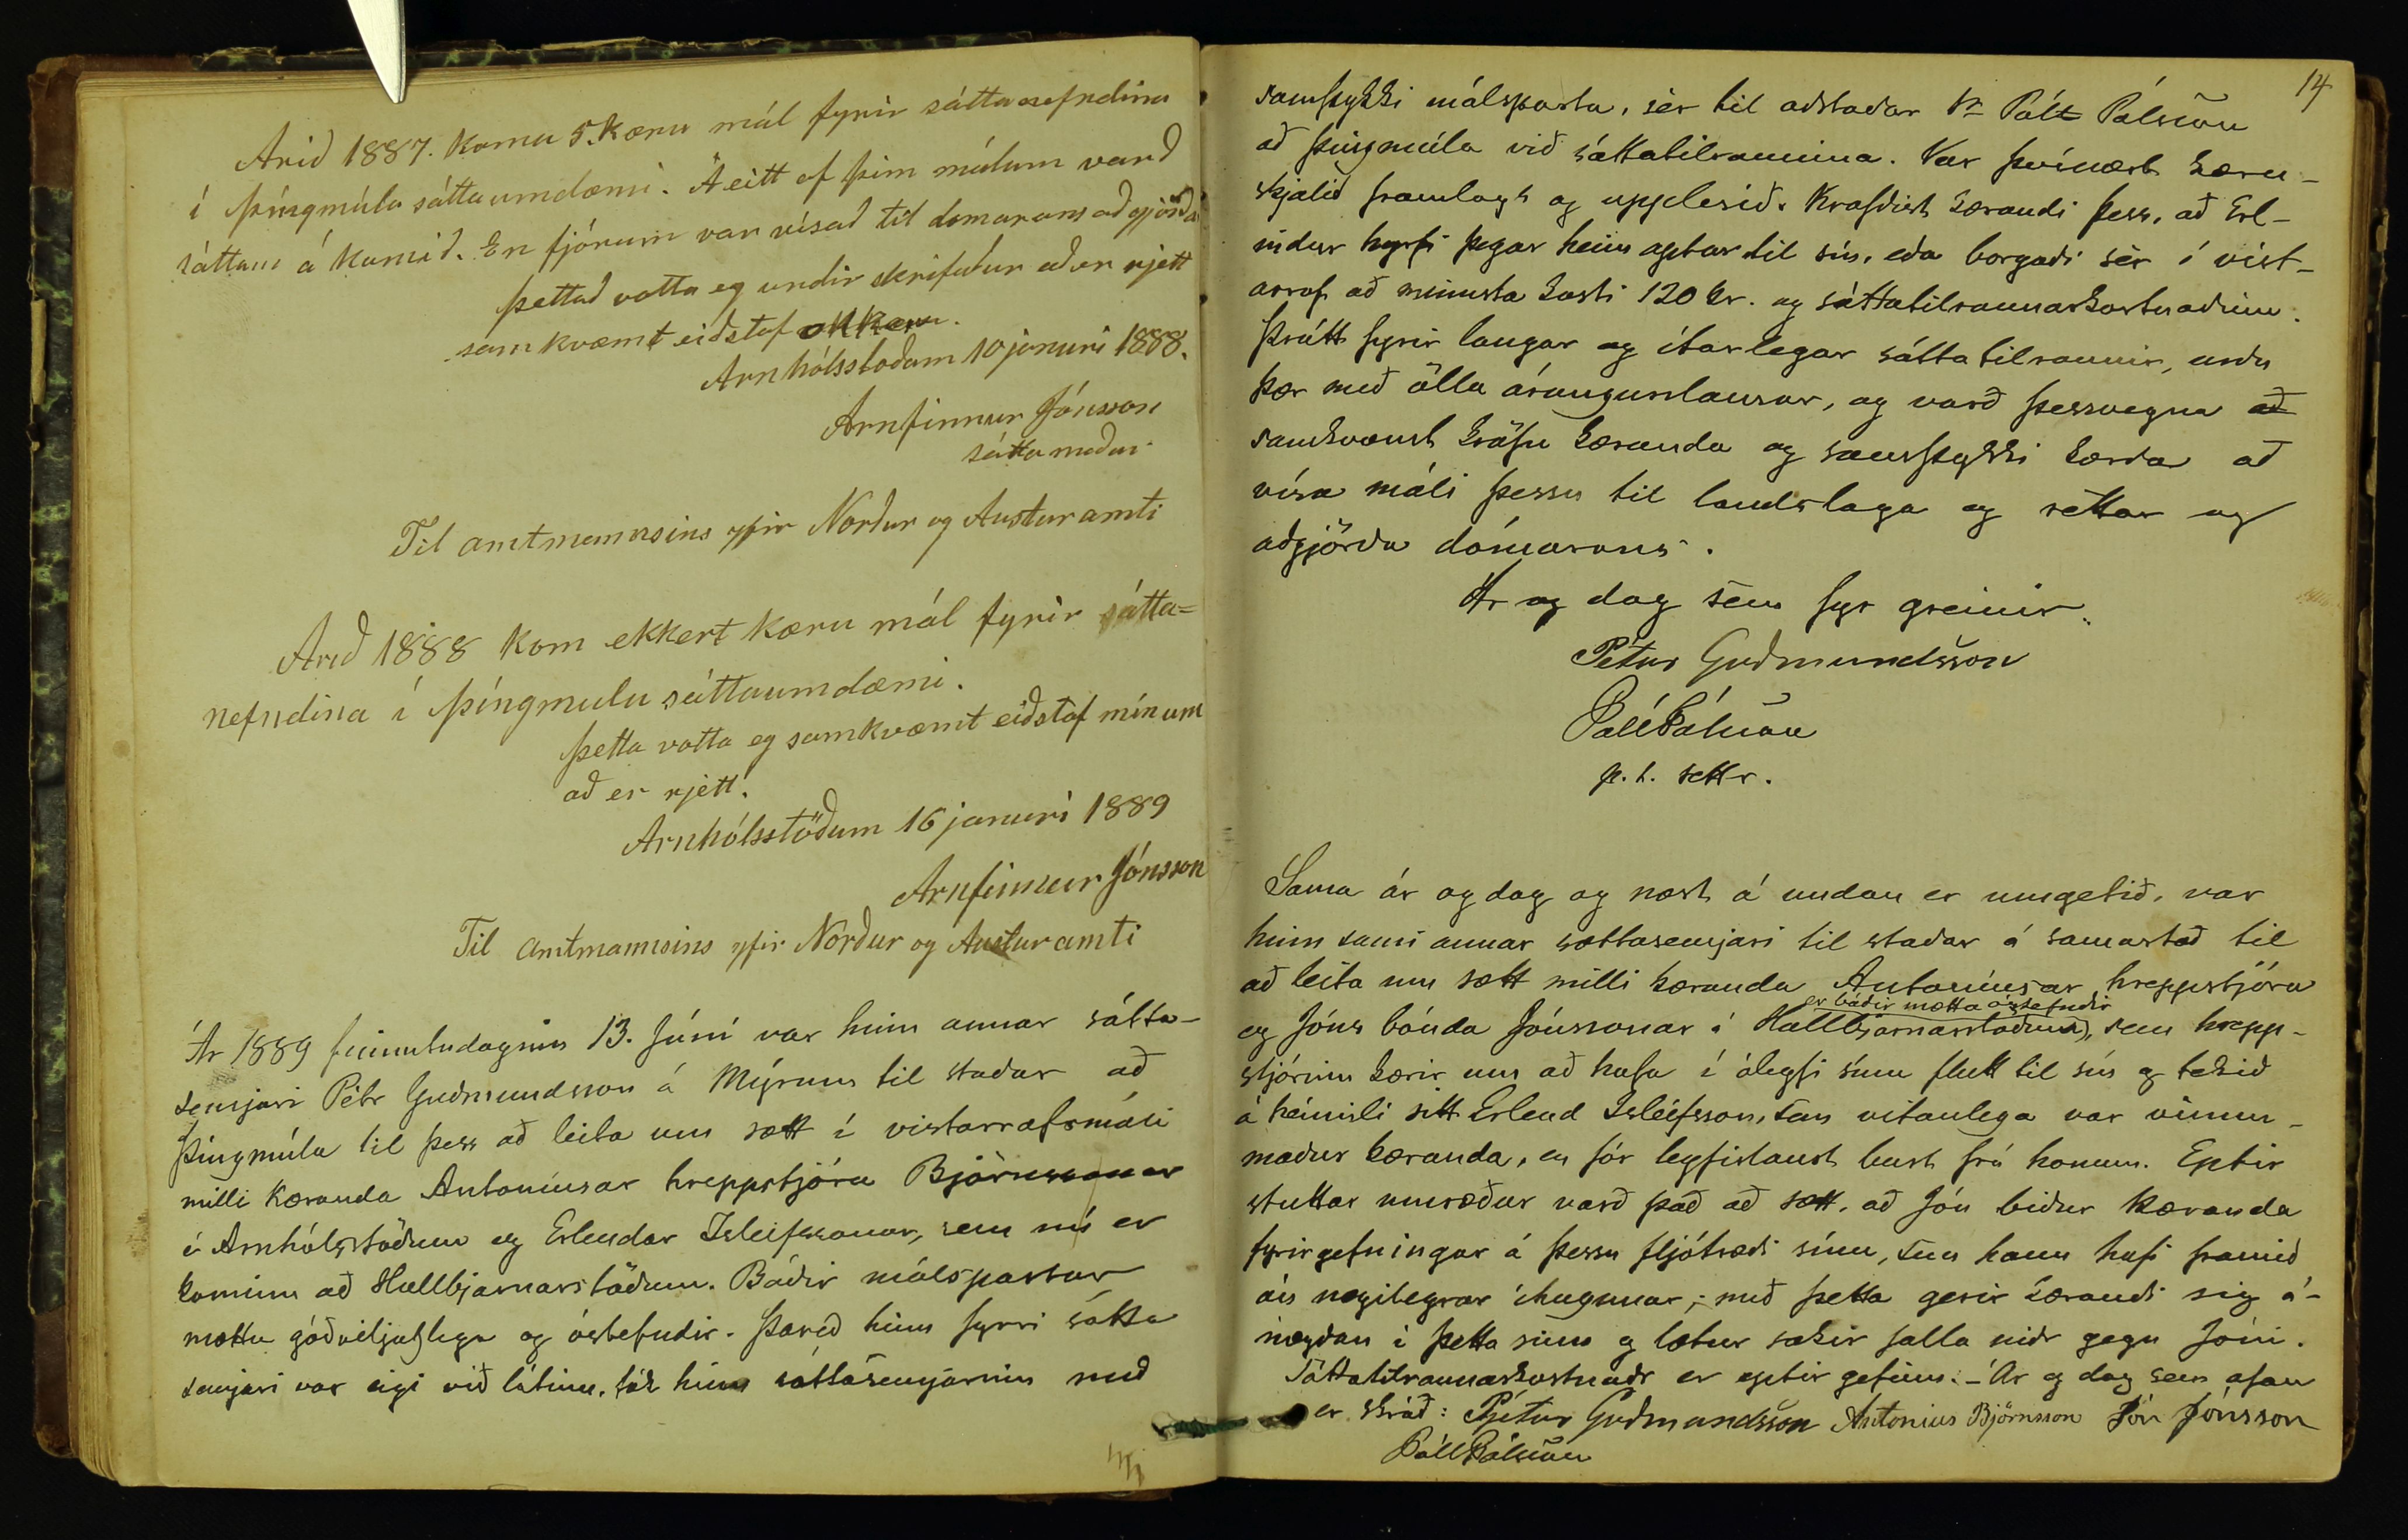 Arið 1887. Komu 5. Kæru mál fyrir sáttanefndina
í Þingmúla sáttaumdæmi. Á eitt of þim málum varð
sáttum á Komið. En fjórum var vísað til domarans aðgjörða
Þettað votta eg undir skrifaður að er rjett
samkvæmt eiðstaf okkar.
Arnhólsstoðum 10 januri 1888.
Arnfinnur Jónsson
sátta maður
Til amtmannsins yfir Norður og Austuramti
Arið 1888 Kom ekkert Kæru mál fyrir sátta=
nefndina í Þíngmulu sáttaumdæmi.
Þetta votta eg samkvæmt eiðstaf mínum
að er rjett.
Arnhólsstöðum 16 januri 1889
Arnfinnur Jónsson
Til amtmannsins yfir Norður og Austuramti
Ár 1889 fimmtudaginn 13. Júní var hinn annar sátta-
semjari Pétr Guðmundsson á Mýrum til staðar að
Þíngmúla til þess að leita um sætt í vistarrofsmáli
milli Kæranda Antoníusar hreppstjóra Björnssonar
á Arnhólsstöðum og Erlendar Isleifssonar, sem nú er
kominn að Hallbjarnarstöðum. Báðir málspartar
mættu góðviljuglega og óstefndir. Þareð hinn fyrri sátta
semjari var eigi við látinn, tók hinn sáttasemjarinn með
14
samþykki málsparta, sér til aðstaðar Sr Páll Pálsson
að Þingmúla við sáttatilraunina. Var þvínæst kæru-
skjalið framlagt og upplesið. Krafðist kærandi þess, að Erl-
indur hyrfi þegar heim aptur til sín, eða borgaði sér í vist-
arrof að minnsta kosti 120 kr. og sáttatilraunarkostnaðinn.
Þrátt fyrir langar og ítarlegar sáttatilraunir, urðu
þær með öllu árangurslausar, og varð þessvegna að
samkvæmt kröfu kæranda og samþykki kærða að
vísa máli þessu til landslaga og réttar og
aðgjörða dómarans.
Ár og dag sem fyr greinir.
Pétur Guðmundsson
Páll Pálsson
p. t. settr.
Sama ár og dag og næst á undan er umgetið, var
hinn sami annar sættasemjari til staðar á samastað til
að leita um sætt milli kæranda Antoníusar hreppstjóra
er báðir mætta óstefndir
og Jóns bónda Jónssonar á Hallbjarnarstöðum), sem hrepp-
stjórinn kærir um að hafa í óleyfi sínu flutt til sín og tekið
á heimili sitt Erlend Isleifsson, sem vitanlega var vinnu-
maður kæranda, en fór leyfislaust burt frá honum. Eptir
stuttar umræður varð það að sætt, að Jón biður Kæranda
fyrirgefningar á þessu fljótræði sínu, sem hann hafi framið
án nægilegrar íhugunar; með þetta gerir kærandi sig á-
nægðan í þetta sinn og lætur sakir falla niðr gegn Jóni.
Sáttatilraunarkostnaðr er eptir gefinn. - Ár og dag sem ofan
er skráð: Pjetur Guðmundsson Antonius Björnsson Jón Jónsson
Páll Pálsson